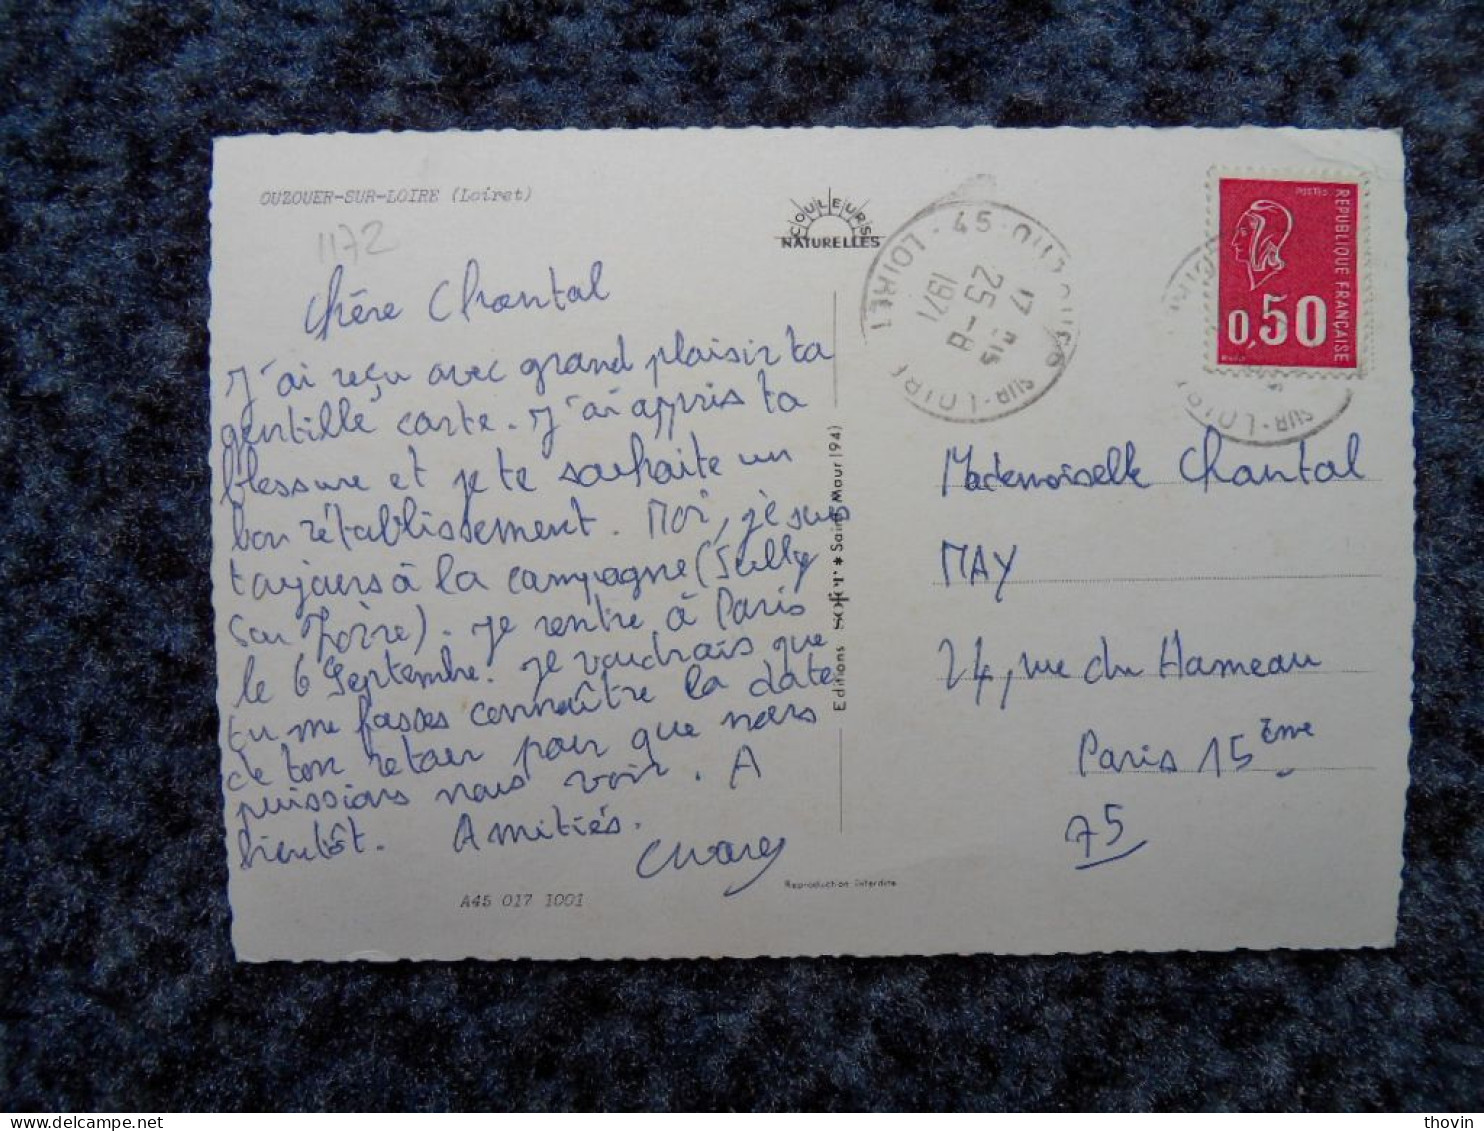 OUZOUER-SUR-LOIRE (Loiret)
1172
Chère Chantal
J'ai reçu avec grand plaisir ta
gentille carte. J'ai appris ta
blessure et je te souhaite un
bon rétablissement. Moi, je suis
toujours à la campagne (Sully
sur Loire). Je rentre à Paris
le 6 Septembre. Je voudrais que
tu me fasses connaître la date
de ton retour pour que nous
puissions nous voir. A
bientôt. Amitiés.
A45 017 1001
COULEURS
NATURELLES
Editions * Saint-Maur (94)
Reproduction interdite
45 OUZOUER SUR-LOIRE LOIRET
17 H 15
25-8
1971
POSTES
REPUBLIQUE FRANÇAISE
0,50
SUR-LOIRE
Mademoiselle Chantal
MAY
24, rue du Hameau
Paris 15ème
75
thovin